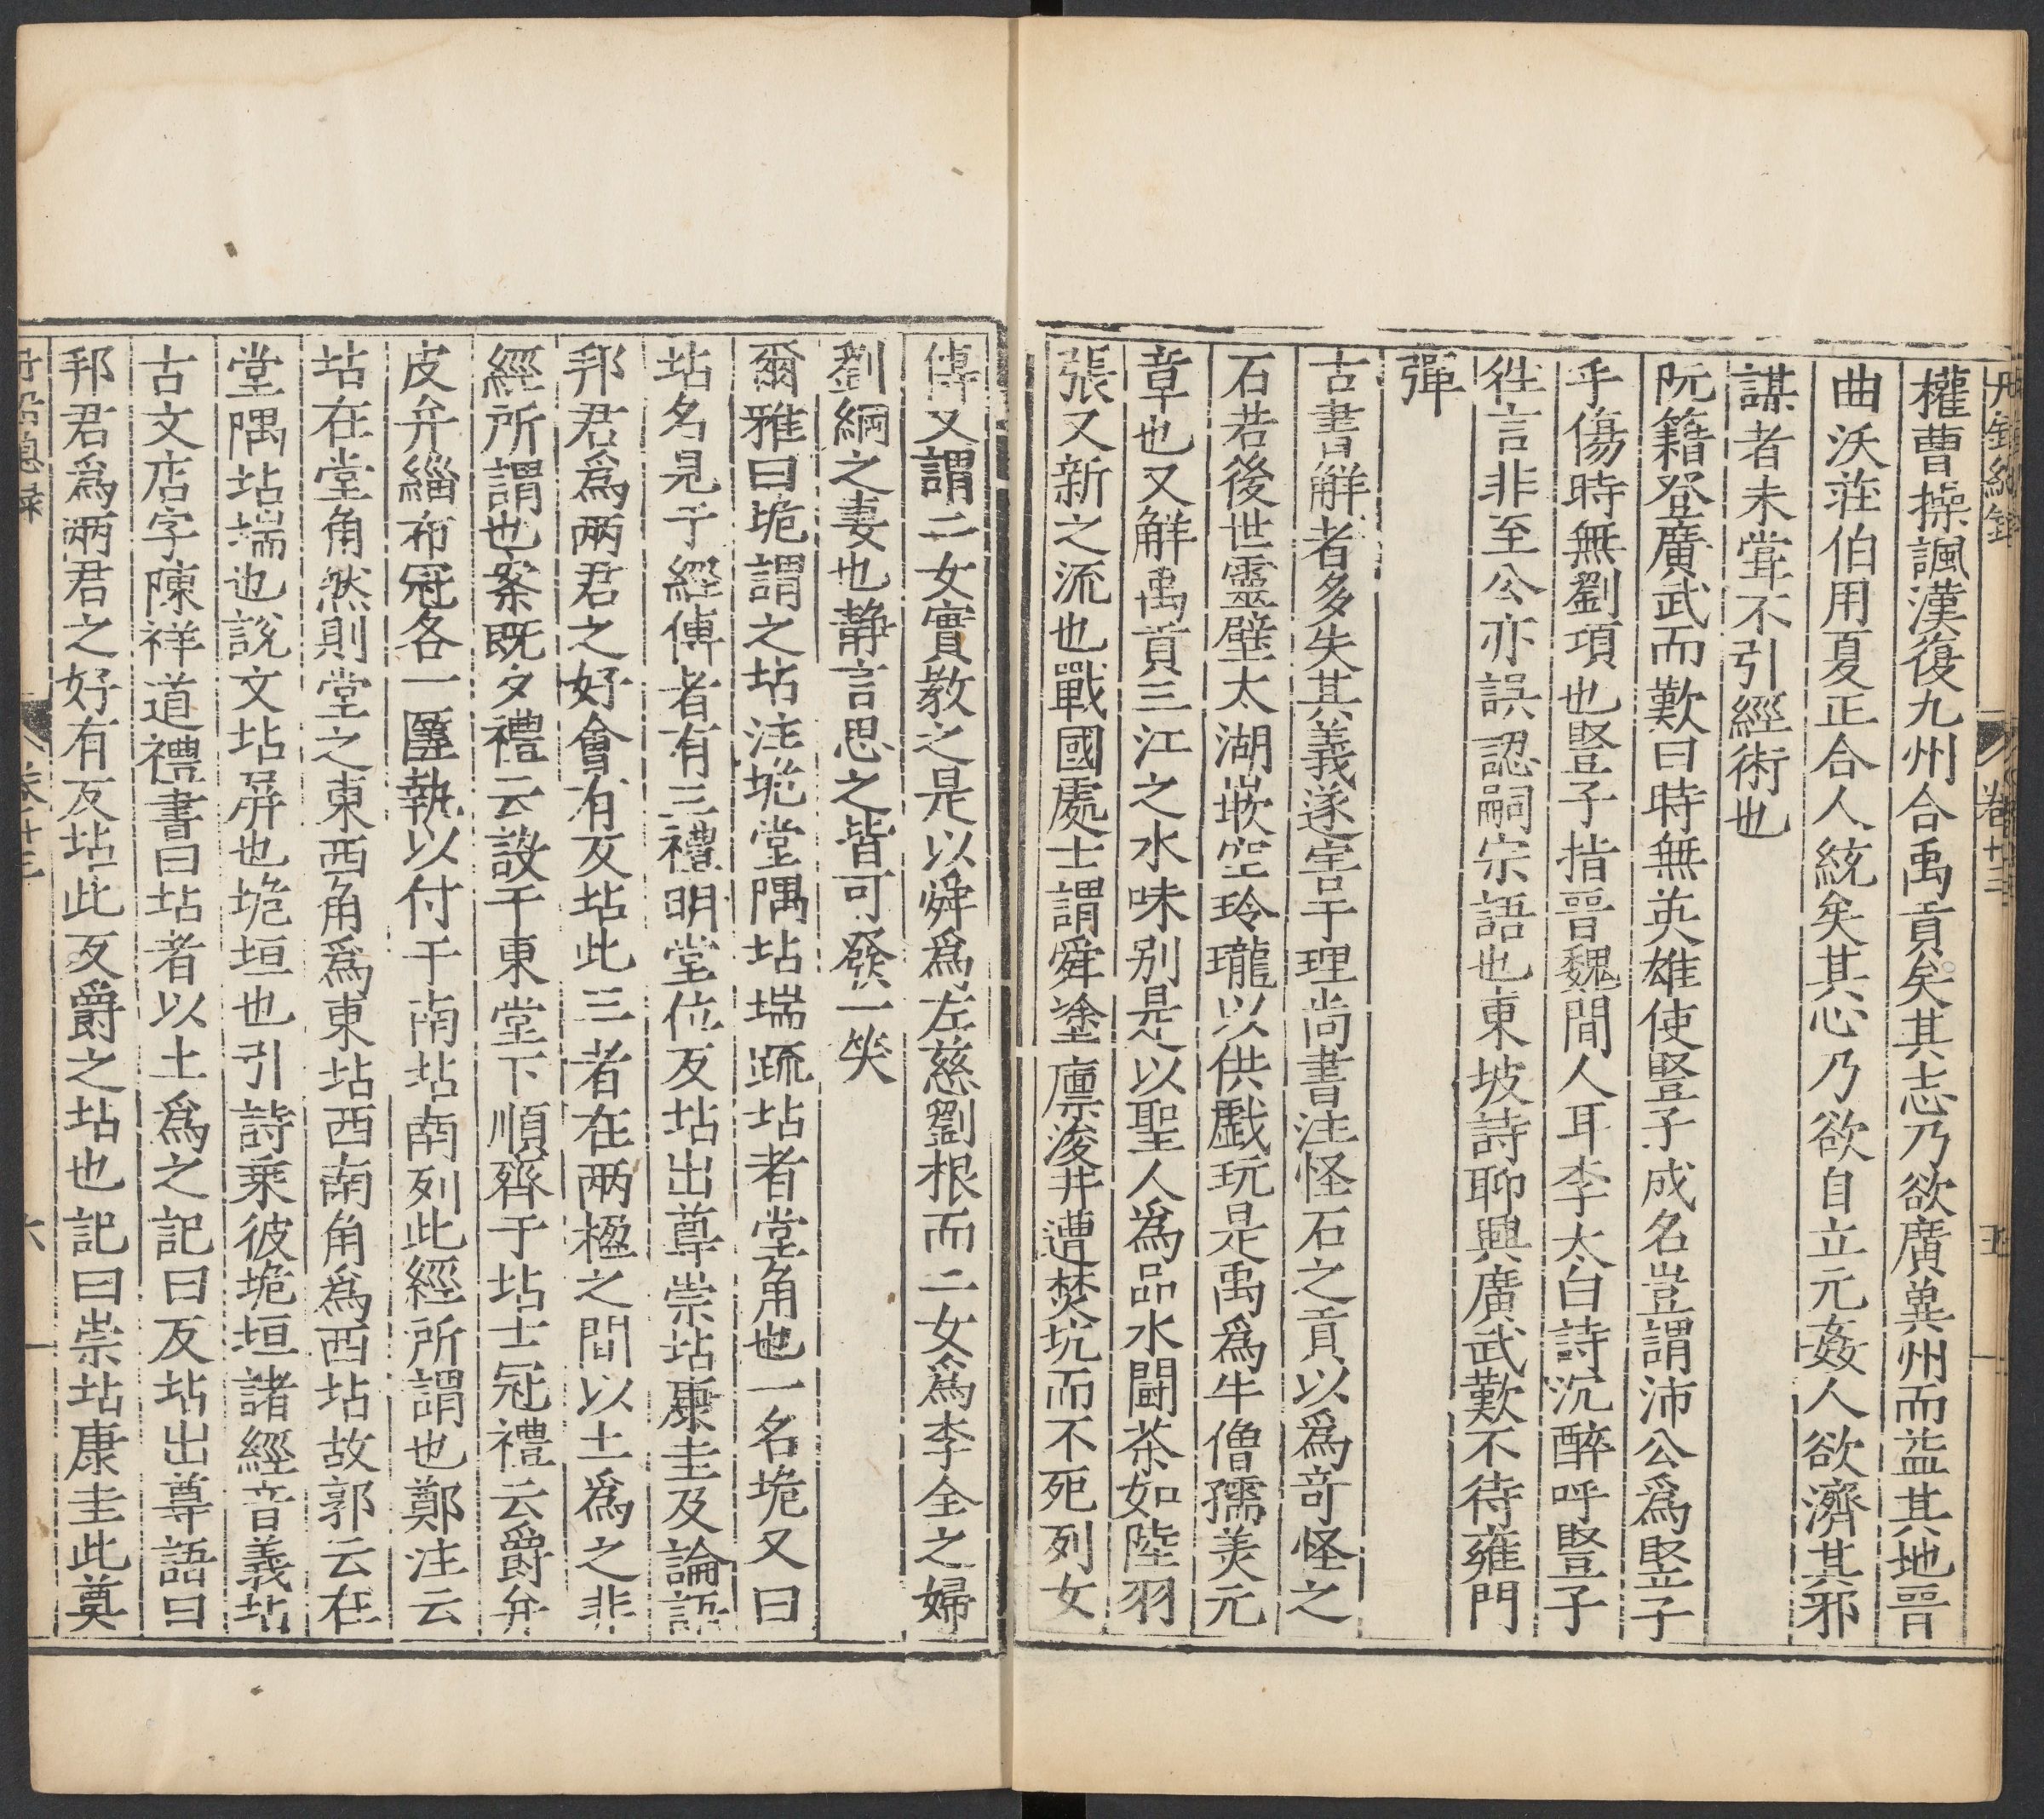 丹鉛總錄
卷十三
五
權曹操諷漢復九州合禹貢矣其志乃欲廣兾州而益其地晉
曲沃莊伯用夏正合人統矣其心乃欲自立元姦人欲濟其邪
謀者未甞不引經術也
阮籍登廣武而歎曰時無英雄使豎子成名豈謂沛公爲竪子
乎傷時無劉項也豎子指晉魏間人耳李太白詩沉醉呼豎子
徃言非至公亦誤認嗣宗語也東坡詩聊興廣武歎不待雍門
彈
古書觧者多失其義遂害于理尚書注怪石之貢以爲竒怪之
石若後世靈壁太湖嵌空玲瓏以供戱玩是禹爲牛僧孺羙元
章也又觧禹貢三江之水味别是以聖人爲品水鬪茶如陸羽
張又新之流也戰國處士謂舜塗廪浚井遭焚坑而不死列女
傳又謂二女實教之是以舜爲左慈劉根而二女爲李全之婦
劉綱之妻也静言思之皆可發一笑
爾雅曰垝謂之坫注垝堂隅坫端疏坫者堂角也一名垝又曰
坫名見于經傳者有三禮明堂位反坫出尊崇坫康圭及論語
邦君爲兩君之好㑹有反坫此三者在兩楹之間以土爲之非
經所謂也案既夕禮云設于東堂下順齊于坫士冠禮云爵弁
皮弁緇布冠各一匴執以付于南坫南列此經所謂也鄭注云
坫在堂角然則堂之東西角爲東坫西南角爲西坫故郭云在
堂隅坫端也說文坫屏也垝垣也引詩乘彼垝垣諸經音義坫
古文店字陳祥道禮書曰坫者以土爲之記曰反坫出尊語曰
邦君爲兩君之好有反坫此反爵之坫也記曰崇坫康圭此奠
丹鉛總錄
卷十三
六